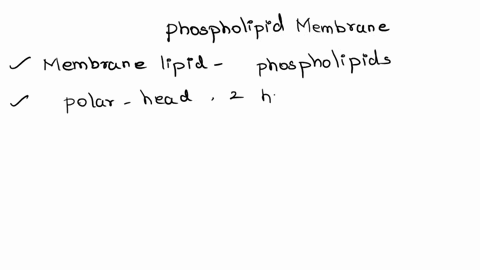 phospholipid Membrane
✓ Membrane lipid - phospholipids
✓ polar - head , 2 h